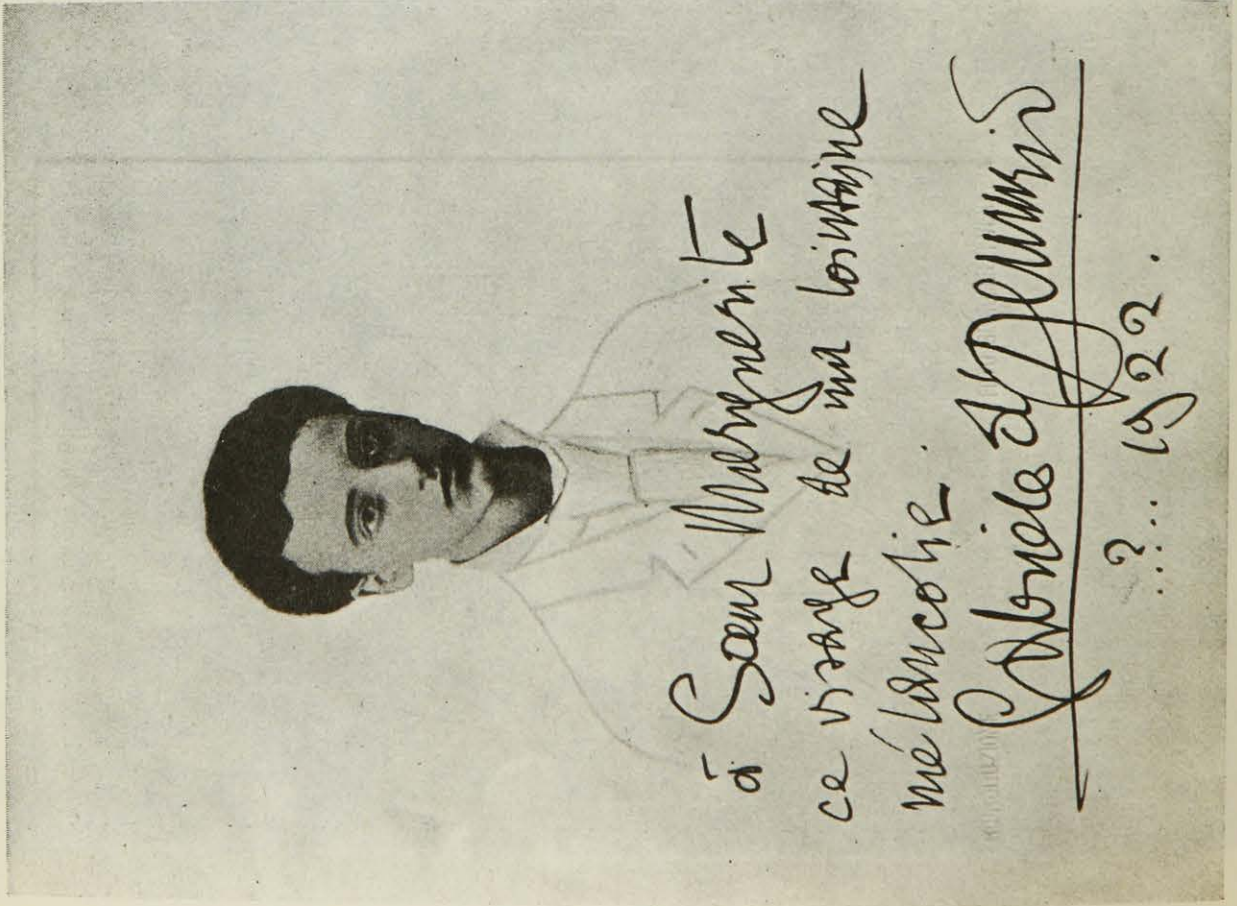 à Sœur Marguerite
ce visage de ma lointaine
mélancolie.
Gabriele d'Annunzio
..?... 1922.